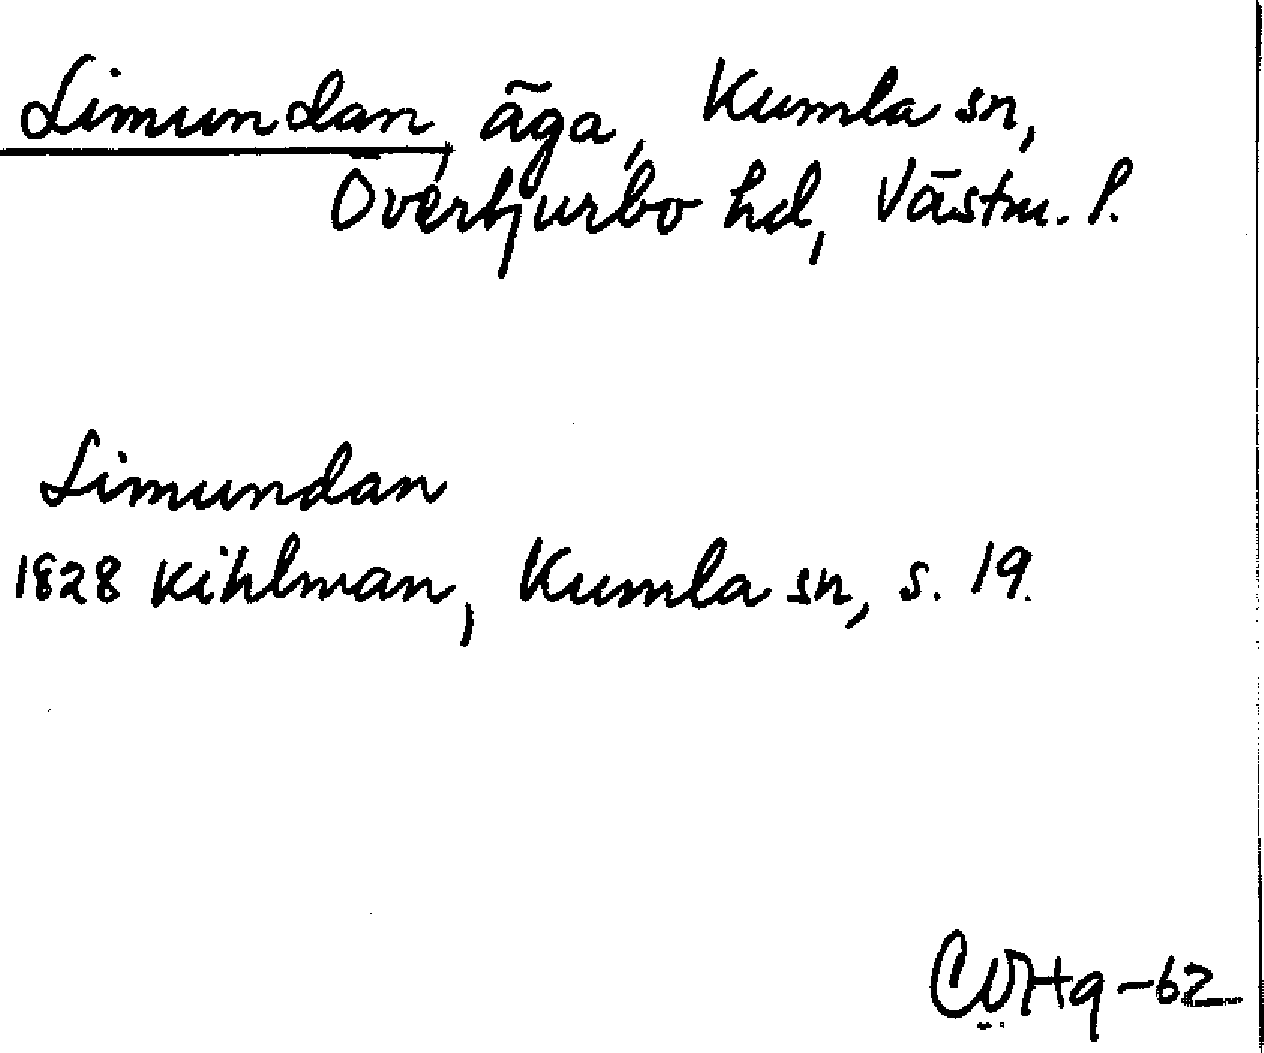 Limundan, äga, Kumla sn,
Övertjurbo hd, Västm. l.
Limundan
1828 Kihlman, Kumla sn, s. 19.
-62